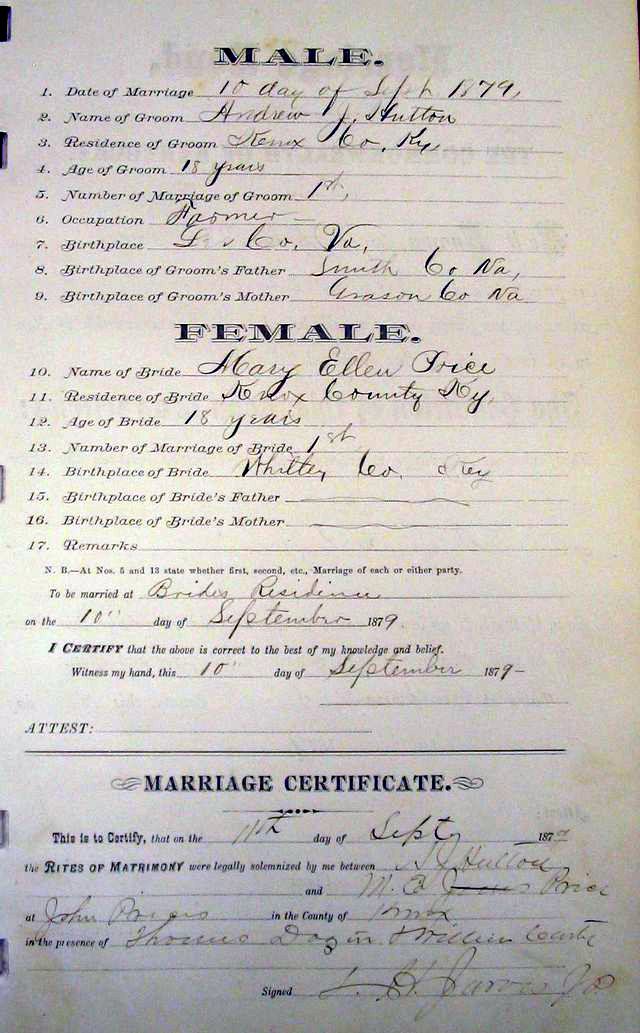 MALE.
1. Date of Marriage 10 day of Sept 1879,
2. Name of Groom Andrew J. Hutton
3. Residence of Groom Knox Co, Ky,
4. Age of Groom 18 years
5. Number of Marriage of Groom 1st,
6. Occupation Farmer
7. Birthplace Lee Co, Va,
8. Birthplace of Groom's Father Smith Co Va,
9. Birthplace of Groom's Mother Grason Co Va
FEMALE.
10. Name of Bride Mary Ellen Price
11. Residence of Bride Knox County Ky,
12. Age of Bride 18 years
13. Number of Marriage of Bride 1st
14. Birthplace of Bride Whitley Co. Key
15. Birthplace of Bride's Father
16. Birthplace of Bride's Mother
17. Remarks
N. B.—At Nos. 5 and 13 state whether first, second, etc., Marriage of each or either party.
To be married at Brides Residence
on the 10" day of September 1879.
I CERTIFY that the above is correct to the best of my knowledge and belief.
Witness my hand, this 10" day of September 1879-
ATTEST:
MARRIAGE CERTIFICATE.
This is to Certify, that on the 11th day of Sept 1879
the RITES OF MATRIMONY were legally solemnized by me between A J Hutton
and M. E Price
at John Prices in the County of Knox
in the presence of Thomas &
Signed Jarvis